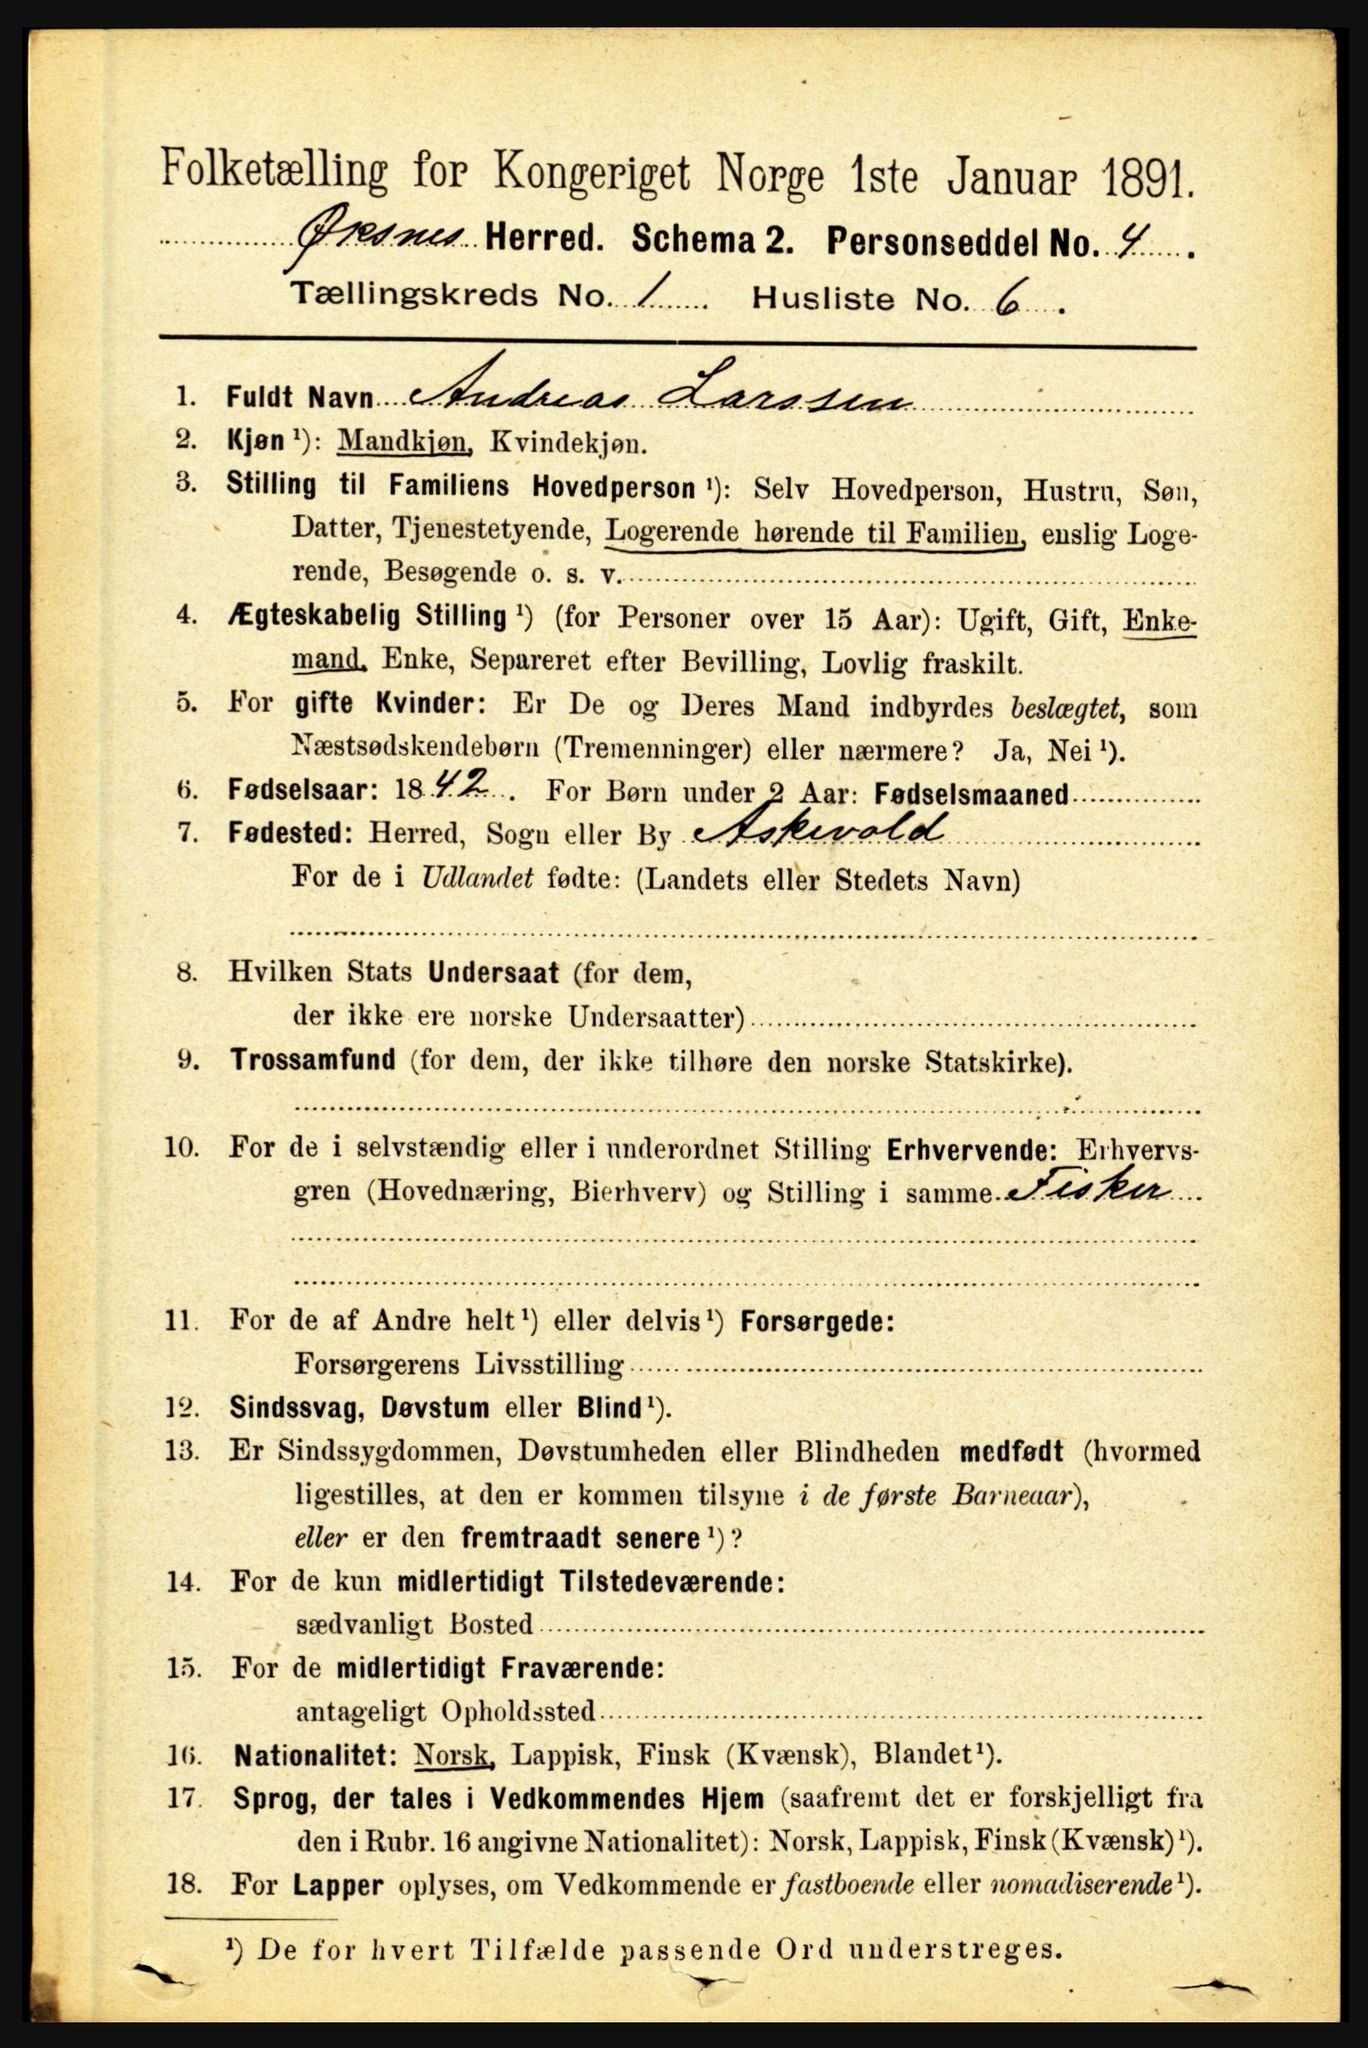 Folketælling for Kongeriget Norge 1ste Januar 1891.
Øksnes Herred. Schema 2. Personseddel No. 4.
Tællingskreds No. 1 Husliste No. 6.
1. Fuldt Navn Andreas Larssen
2. Kjøn ¹): Mandkjøn, Kvindekjøn.
3. Stilling til Familiens Hovedperson ¹): Selv Hovedperson, Hustru, Søn,
Datter, Tjenestetyende, Logerende hørende til Familien, enslig Loge-
rende, Besøgende o. s. v.
4. Ægteskabelig Stilling ¹) (for Personer over 15 Aar): Ugift, Gift, Enke-
mand, Enke, Separeret efter Bevilling, Lovlig fraskilt.
5. For gifte Kvinder: Er De og Deres Mand indbyrdes beslægtet, som
Næstsødskendebørn (Tremenninger) eller nærmere? Ja, Nei ¹).
6. Fødselsaar: 1842. For Børn under 2 Aar: Fødselsmaaned
7. Fødested: Herred, Sogn eller By Askevold
For de i Udlandet fødte: (Landets eller Stedets Navn)
8. Hvilken Stats Undersaat (for dem,
der ikke ere norske Undersaatter)
9. Trossamfund (for dem, der ikke tilhøre den norske Statskirke).
10. For de i selvstændig eller i underordnet Stilling Erhvervende: Erhvervs-
gren (Hovednæring, Bierhverv) og Stilling i samme Fisker
11. For de af Andre helt ¹) eller delvis ¹) Forsørgede:
Forsørgerens Livsstilling
12. Sindssvag, Døvstum eller Blind ¹).
13. Er Sindssygdommen, Døvstumheden eller Blindheden medfødt (hvormed
ligestilles, at den er kommen tilsyne i de første Barneaar),
eller er den fremtraadt senere ¹)?
14. For de kun midlertidigt Tilstedeværende:
sædvanligt Bosted
15. For de midlertidigt Fraværende:
antageligt Opholdssted
16. Nationalitet: Norsk, Lappisk, Finsk (Kvænsk), Blandet ¹).
17. Sprog, der tales i Vedkommendes Hjem (saafremt det er forskjelligt fra
den i Rubr. 16 angivne Nationalitet): Norsk, Lappisk, Finsk (Kvænsk) ¹).
18. For Lapper oplyses, om Vedkommende er fastboende eller nomadiserende ¹).
¹) De for hvert Tilfælde passende Ord understreges.